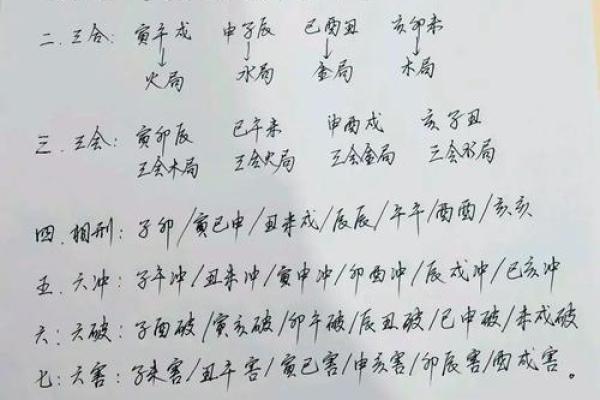 二.三合: 寅午戌 申子辰 巳酉丑 亥卯未
火局 水局 金局 木局
三.三会: 寅卯辰 巳午未 申酉戌 亥子丑
三会木局 三会火局 三会金局 三会水局
四.相刑: 子卯/寅巳申/丑未戌/辰辰/午午/酉酉/亥亥
五.六冲: 子午冲/丑未冲/寅申冲/卯酉冲/辰戌冲/巳亥冲
六:六破: 子酉破/寅亥破/卯午破/辰丑破/巳申破/未戌破
七:六害: 子未害/丑午害/寅巳害/申亥害/卯辰害/酉戌害。